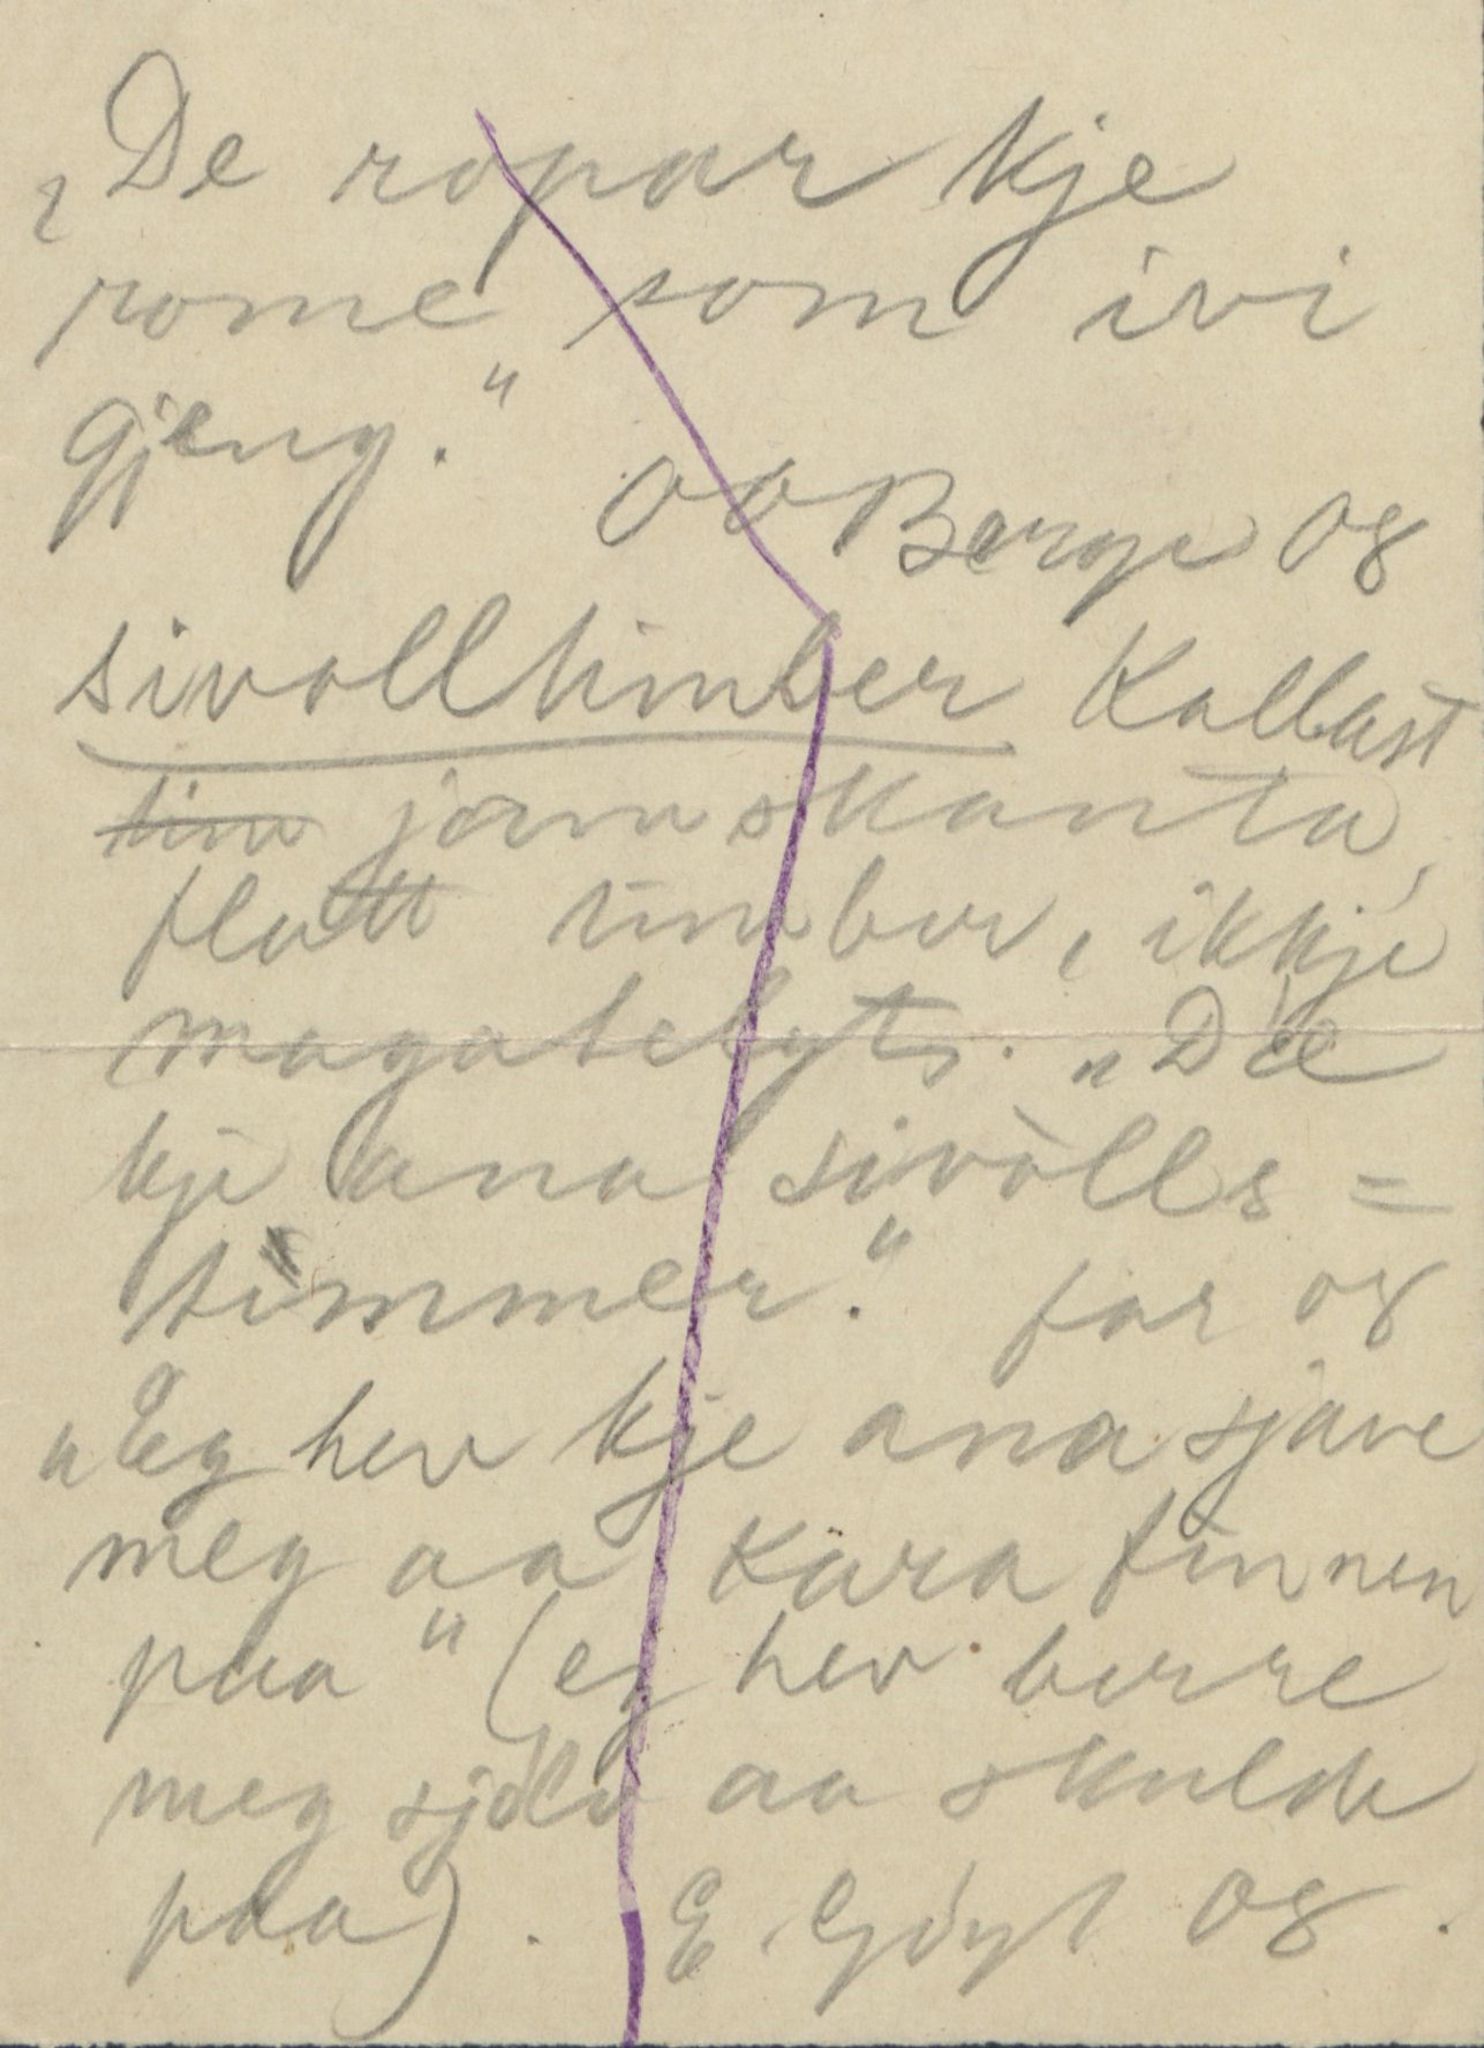 „De ropar kje
rome som ivi
gjeng."
O O Berge Os
sivolltimber Kallast
tim jamskanta,
flatt timber, ikkje
magatelgt. „D'æ
kje ana sivòlls =
timmer." far os
„Eg hev kje ana sjave
meg aa kara finnen
paa" (eg hev berre
meg sjølv aa skulde
paa). E. Gdyt Os.